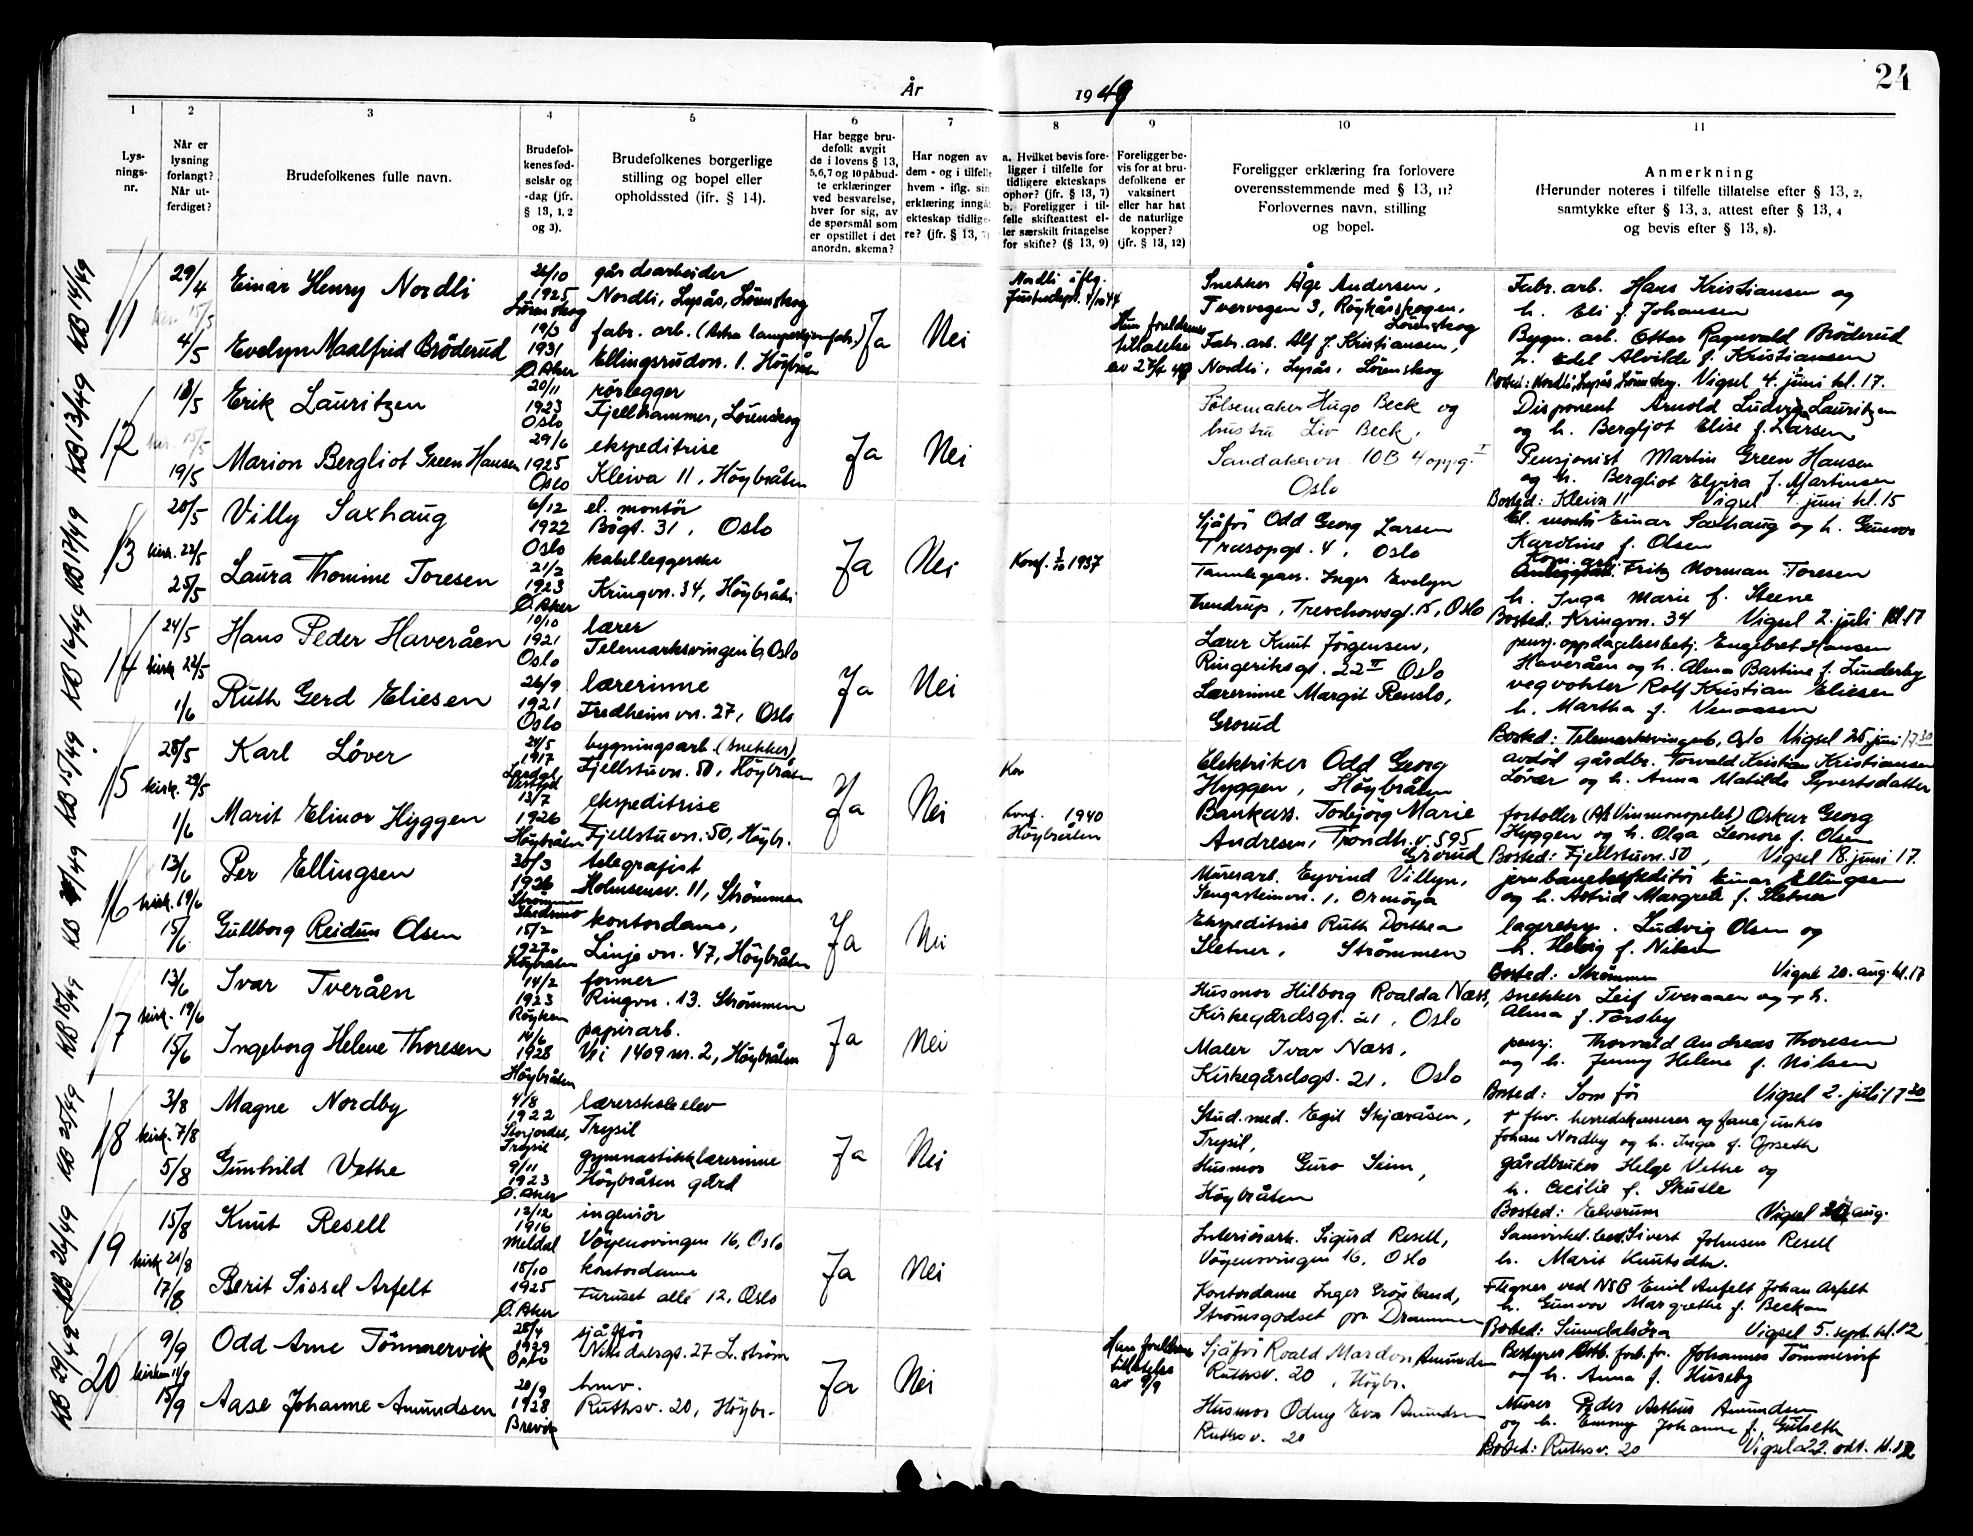 24
År 1949
1 2 3 4 5 6 7 8 9 10 11
Lysningsnr.
Når er lysning forlangt? Når utferdiget?
Brudefolkenes fulle navn.
Brudefolkenes fødselsår og -dag (jfr. § 13, 1, 2 og 3).
Brudefolkenes borgerlige stilling og bopel eller opholdssted (ifr. § 14).
Har begge brudefolk avgit de i lovens § 13, 5,6,7 og 10 påbudte erklæringer ved besvarelse, hver for sig, av de spørsmål som er opstillet i det anordn. skema?
Har nogen av dem - og i tilfelle hvem - iflg. sin erklæring inngåt ekteskap tidligere? (jfr. § 13, 7)
a. Hvilket bevis foreligger i tilfelle for tidligere ekteskaps ophør? (jfr. § 13, 7) b. Foreligger i tilfelle skifteattest eller særskilt fritagelse for skifte? (§ 13, 9)
Foreligger bevis for at brudefolkene er vaksinert eller har hat de naturlige kopper? (jfr. § 13, 12)
Foreligger erklæring fra forlovere overensstemmende med § 13, 11? Forlovernes navn, stilling og bopel.
Anmerkning (Herunder noteres i tilfelle tillatelse efter § 13, 2, samtykke efter § 13, 3, attest efter § 13, 4 og bevis efter § 13, 8).
KB 14/49
11
29/4
4/5
Einar Henry Nordli
Evelyn Maalfrid Bröderud
26/10 1925 Lörenskog
19/3 1931 Ø. Aker
gårdsarbeider
Nordli, Lysås, Lörenskog
fabr. arb.
Ellingsrudvn. 1. Höybråten
Ja
Nei
Nordli iflg.
Justisdept. 4/10 44
Hun foreldrenes tillatelse
Snekker Åge Andersen,
Tvervegen 3, Röykåsskogen, Lörenskog
Fabr. arb. Alf J. Kristiansen,
Nordli, Lysås, Lörenskog
Fabr. arb. Hans Kristiansen og
h. Eli f. Johansen
Bygn. arb. Ottar Ragnvald Bröderud
h. Edel Alvilde f. Kristiansen
Bosted: Nordli, Lysås Lörenskog. Vigsel 4. juni kl. 17.
KB 13/49
12
18/5
19/5
Erik Lauritzen
Marion Bergliot Green Hansen
20/11 1923 Oslo
29/6 1925 Oslo
rörlegger
Fjellhammer, Lörenskog
ekspeditrise
Kleiva 11, Höybråten
Ja
Nei
Pölsemaker Hugo Beck og
hustru Liv Beck,
Sandakervn. 10B 4 oppg.
Oslo
Disponent Arnold Ludvig Lauritzen
og h. Bergljot Elise f. Larsen
Pensjonist Martin Green Hansen
og h. Bergliot Elvira f. Martinsen
Bosted: Kleiva 11 Vigsel 4. juni kl. 15
KB 17/49
13
20/5
kirk. 22/5
25/5
Villy Saxhaug
Laura Thomine Toresen
6/12 1922 Oslo
21/2 1923 Ø. Aker
el. montör
Bögt. 31, Oslo
kabelleggerske
Kringvn. 34, Höybråten
Ja
Nei
Konf. 3/10 1937
Sjåför Odd Georg Larsen
Träsopgt. 4, Oslo
Tannlegeass. Inger Evelyn
Thendrup, Treschowsgt. 15, Oslo
El. montör Einar Saxhaug og h. Gunvor
Karoline f. Olsen
Kom. arb. Fritz Norman Toresen
h. Inga Marie f. Steene
Bosted. Kringvn. 34 Vigsel 2. juli kl. 17
KB 16/49
14
24/5
kirk 22/5
1/6
Hans Peder Haveråen
Ruth Gerd Eliesen
10/10 1921 Oslo
26/9 1921 Oslo
lærer
Telemarksvingen 6, Oslo
lærerinne
Fredheimvn. 27, Oslo
Ja
Nei
Lærer Knut Jörgensen,
Ringeriksgt. 22 II Oslo
Lærerinne Margit Renslo,
Grorud
pensj. oppdagelsesbetj. Engebret Hansen
Haveråen og h. Alma Bastine f. Lunderby
vegvokter Rolf Kristian Eliesen
h. Martha f. Venaasen
Bosted: Telemarksvingen 6, Oslo Vigsel 25 juni 17 30
KB 15/49
15
28/5
kirk. 29/5
1/6
Karl Löver
Marit Elinor Hyggen
24/5 1917
13/7 1926 Höybråten
bygningsarb. (snekker)
Fjellstuvn. 50, Höybråten
ekspeditrise
Fjellstuvn. 50, Höybr.
Ja
Nei
Kon
Konf. 1940
Höybråten
Elektriker Odd Georg
Hyggen, Höybråten
Bankass. Torbjörg Marie
Andresen, Trondh.v. 595
Grorud
avdöd gårdbr. Torvald Kristian Kristiansen
Lövær og h. Anna Matilde Syvertsdatter
fortoller (A/S Vinmonopolet) Oskar Georg
Hyggen og h. Olga Leonore f. Olsen
Bosted: Fjellstuvn. 50, Vigsel 18. juni 17.
16
13/6
kirk. 19/6
15/6
Per Ellingsen
Gullborg Reidun Olsen
30/3 1926 Strömmen Skedsmo
15/2 1927 Höybråten
telegrafist
Holmsensv. 11, Strömmen
kontordame,
Linjevn. 47, Höybråten
Ja
Nei
Murerarb. Eyvind Villyn,
Sengasteinvn. 1, Ormöya
Ekspeditrise Ruth Dorthea
Sletner, Strömmen
jernbaneekspeditör Einar Ellingsen
og h. Astrid Margrete f. Sletner
lagereksp. Ludvig Olsen og
h. Helvig f. Nilsen
Bosted: Strömmen Vigsel 20. aug. kl. 17
KB 18/49
17
13/6
kirk. 19/6
15/6
Ivar Tveråen
Ingeborg Helene Thoresen
14/2 1923 Röyken
14/6 1928 Höybråten
former
Ringvn. 13. Strömmen
papirarb.
Vei 1409 nr. 2, Höybråten
Ja
Nei
Husmor Hilborg Roalda Næss,
Kirkegårdsgt. 21, Oslo
Maler Ivar Næss,
Kirkegårdsgt. 21, Oslo
snekker Leif Tveraaen og h.
Alma f. Torsby
pensj. Thorvald Andreas Thoresen
og h. Jenny Helene f. Nilsen
Bosted: Som för Vigsel 2. juli 17 30
KB 25/49
18
3/8
kirk. 7/8
5/8
Magne Nordby
Gunhild Vethe
4/8 1922 Storjordet, Trysil
9/11 1923 Ø. Aker
lærerskoleelev
Trysil
gymnastikklærerinne
Höybråten gård
Ja
Nei
Stud. med. Egil Skjæråsen,
Trysil,
Husmor Guro Seim,
Höybråten
+ fhv. herredskasserer og fanejunker
Johan Nordby og h. Inga f. Opseth
gårdbruker Helge Vethe og
h. Cecilie f. Skutle
Bosted: Elverum Vigsel aug.
KB 26/49
19
15/8
kirk 21/8
17/8
Knut Resell
Berit Sissel Arfelt
12/12 1916 Meldal
18/10 1925 Ø. Aker
ingeniör
Vöyensvingen 16, Oslo
kontordame
Furuset alle 12, Oslo
Ja
Nei
Interiörark. Sigurd Resell,
Vöyensvingen 16, Oslo
Kontordame Inger Grönland,
Strömsgodset pr Drammen
Samvirkel. best. Sivert Johnsen Resell
h. Marit Knutsdtr.
Tegner ved NSB Emil Anfelt Johan Arfelt
h. Gunvor Margrethe f. Beckan
Bosted: Sunndalsöra Vigsel 5. sept. kl. 12
KB 29/49
20
9/9
kirken 11/9
15/9
Odd Arne Tömmervik
Aase Johanne Amundsen
28/4 1929 Oslo
20/9 1928 Brevik
sjåför
Nittedalsgt. 27 L.ström
husv.
Ruthsv. 20, Höybr.
Ja
Nei
Han foreldrenes tillatelse av 9/9
Sjåför Roald Mardon Amundsen
Ruthsv. 20, Höybr.
Husmor Odny Eva Amundsen
Ruthsv. 20
Bestyrer Johannes Tömmervik
og h. Anna f. Huseby
Murer Peder Arthur Amundsen
og h. Emmy Johanne f. Gulseth
Bosted: Ruthsv. 20 Vigsel 22. okt. kl. 12